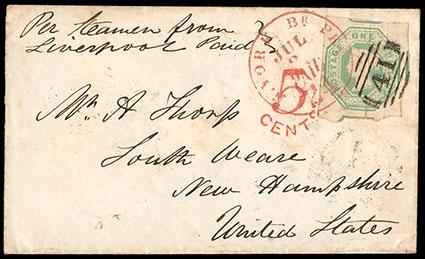 Per Steamer from
Liverpool Paid
YORK BR. P
JUL
5
CENTS
POSTAGE ONE
41
Mr. A Thorp
South Weare
New Hampshire
United States